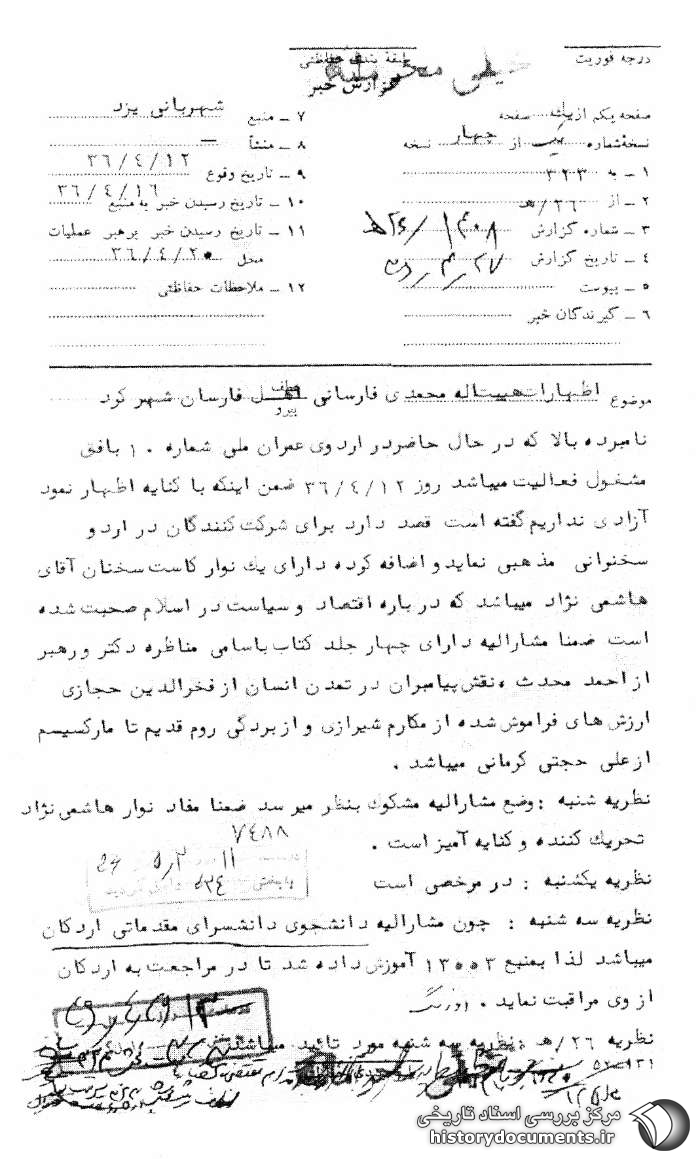 درجه فوریت
طبقه بندی حفاظتی
خیلی محرمانه
گزارش خبر
صفحه یکم از یک صفحه
نسخه شماره یک از چهار نسخه
۱ ـ به ۳۲۳
۲ ـ از ۲۶/ هـ
۳ ـ شماره گزارش ۱۴۰۸/ ۲۶ هـ
۴ ـ تاریخ گزارش
۵ ـ پیوست
۶ ـ گیرندگان خبر
۷ ـ منبع شهربانی یزد
۸ ـ منشأ ـ
۹ ـ تاریخ وقوع ۳۶/۴/۱۲
۱۰ ـ تاریخ رسیدن خبر به منبع ۳۶/۴/۱۶
۱۱ ـ تاریخ رسیدن خبر برهبر عملیات
محل ۳۶/۴/۲۰
۱۲ ـ ملاحظات حفاظتی
موضوع اظهارات هیبت اله محمدی فارسانی اهل فارسان شهر کرد
عطف
پیرو
نامبرده بالا که در حال حاضر در اردوی عمران ملی شماره ۱۰ بافق
مشغول فعالیت میباشد روز ۳۶/۴/۱۲ ضمن اینکه با کنایه اظهار نمود
آزادی نداریم گفته است قصد دارد برای شرکت کنندگان در اردو
سخنوانی مذهبی نماید و اضافه کرده دارای یک نوار کاست سخنان آقای
هاشمی نژاد میباشد که درباره اقتصاد و سیاست در اسلام صحبت شده
است ضمنا مشارالیه دارای چهار جلد کتاب باسامی مناظره دکتر و رهبر
از احمد محدث ، نقش پیامبران در تمدن انسان از فخرالدین حجازی
ارزش های فراموش شده از مکارم شیرازی و از بردگی روم قدیم تا مارکسیسم
از علی حجتی کرمانی میباشد .
نظریه شنبه : وضع مشارالیه مشکوک بنظر میرسد ضمنا مفاد نوار هاشمی نژاد
تحریک کننده و کنایه آمیز است .
۷۴۸۸
نظریه یکشنبه : در مرخصی است
نظریه سه شنبه : چون مشارالیه دانشجوی دانشسرای مقدماتی اردکان
میباشد لذا بمنبع ۱۳۰۰۳ آموزش داده شد تا در مراجعت به اردکان
از وی مراقبت نماید .
نظریه ۲۶/هـ : نظریه سه شنبه مورد تائید میباشد
مرکز بررسی اسناد تاریخی
historydocuments.ir